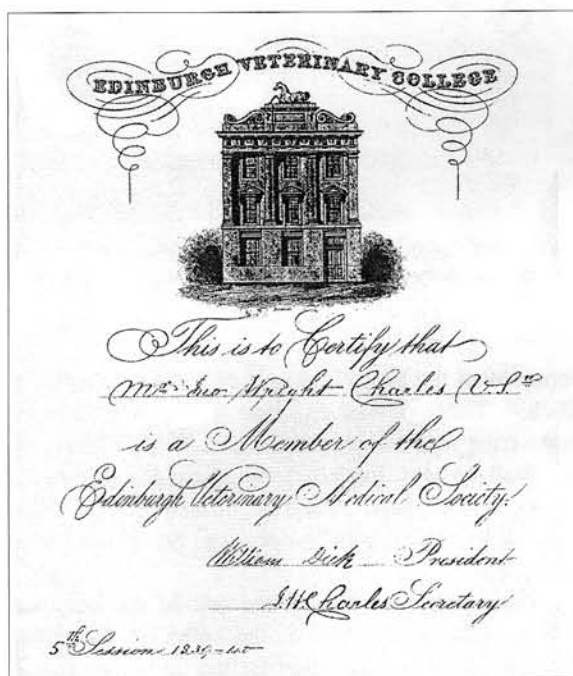 EDINBURGH VETERINARY COLLEGE
This is to Certify that
Mr. Jno. Wright Charles V.S.
is a Member of the
Edinburgh Veterinary Medical Society.
William Dick President
J.W. Charles Secretary
5th Session 1839-40